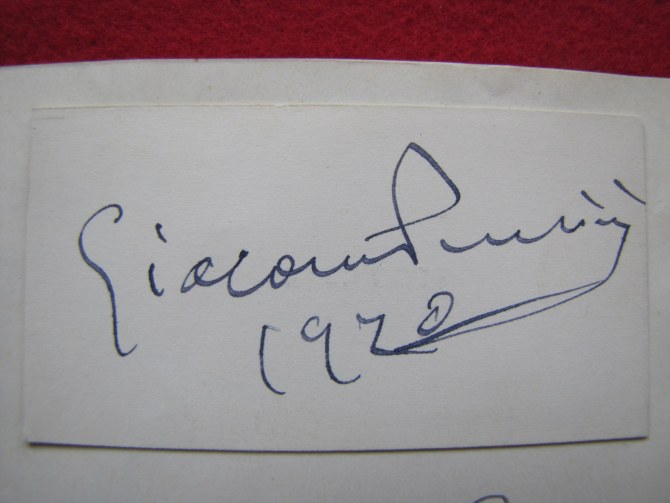 Giacomo Puccini
1920